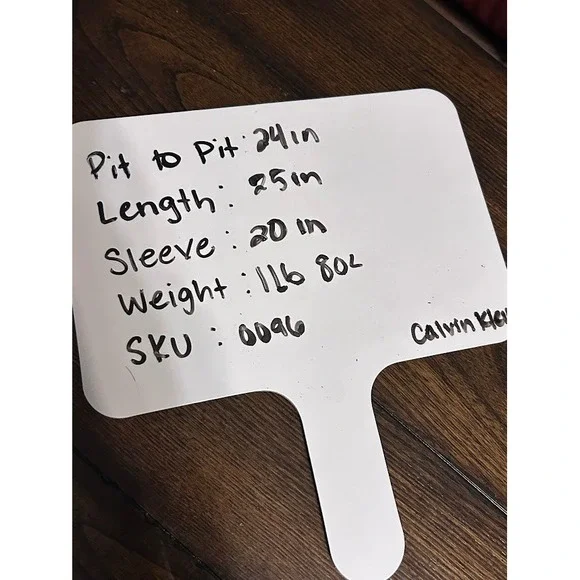 Pit to Pit: 24in
Length: 25in
Sleeve: 20 in
Weight: 1lb 8oz
SKU: 0096
Calvin Klei